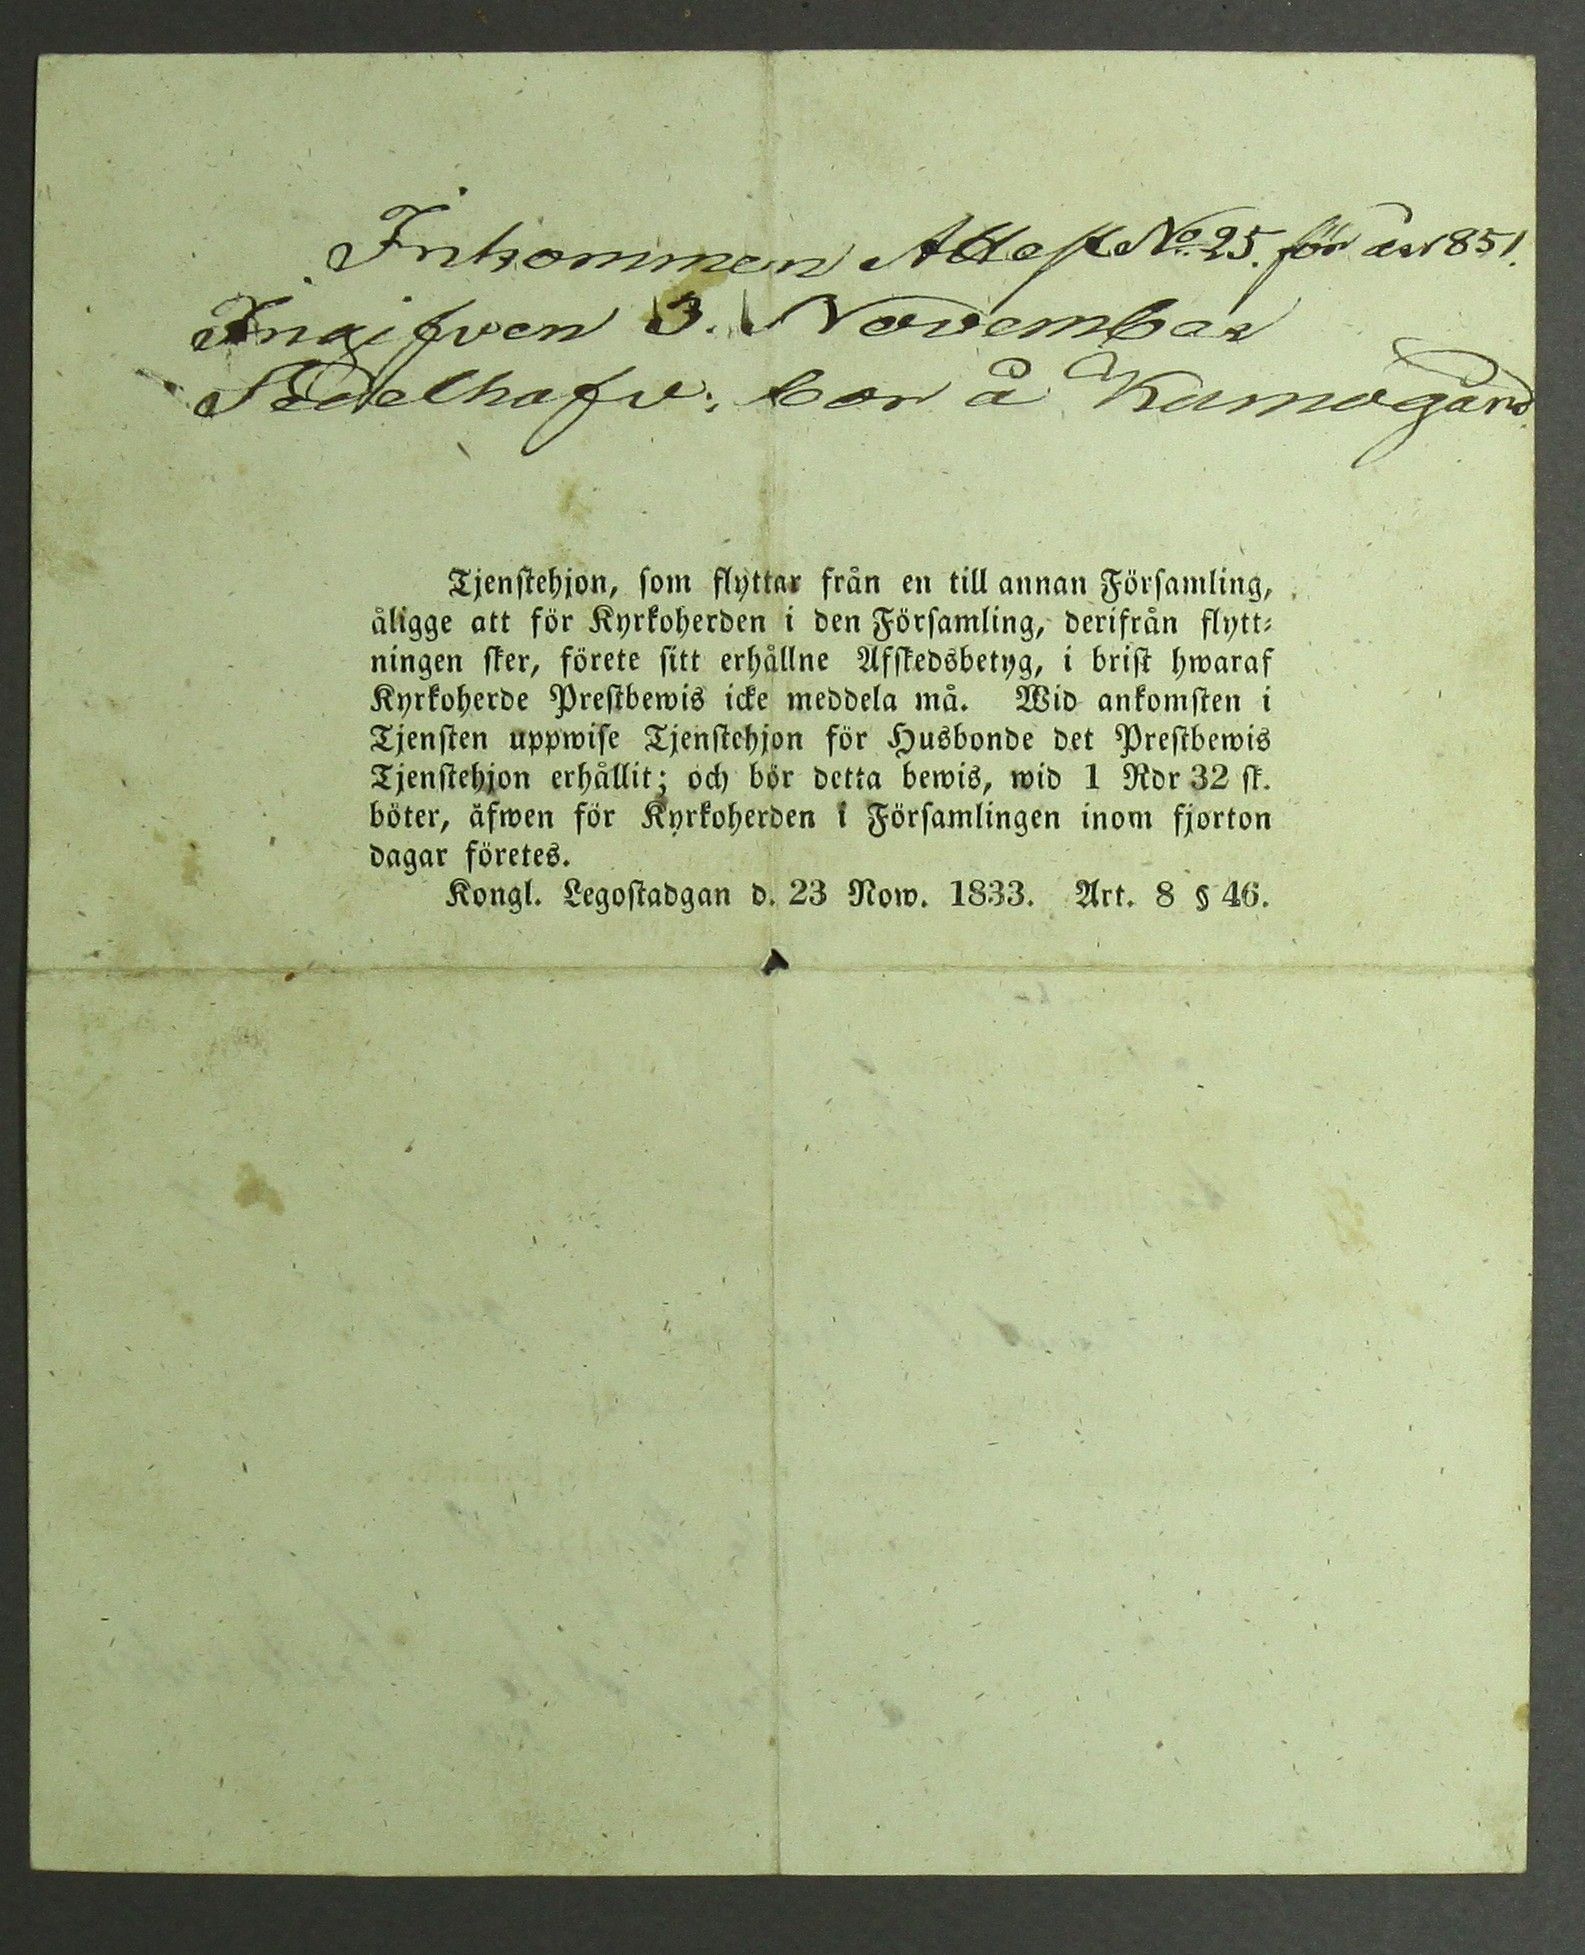 Inkommen Attest No 25. för år 1851.
Ingifven 3. November
Sedelhafv: bor å Kumogård
Tjenstehjon, som flyttar från en till annan Församling,
åligge att för Kyrkoherden i den Församling, derifrån flytt-
ningen sker, förete sitt erhållne Afskedsbetyg, i brist hwaraf
Kyrkoherde Prestbewis icke meddela må. Wid ankomsten i
Tjensten uppwise Tjenstehjon för Husbonde det Prestbewis
Tjenstehjon erhållit; och bör detta bewis, wid 1 Rdr 32 sk.
böter, äfwen för Kyrkoherden i Församlingen inom fjorton
dagar företes.
Kongl. Legostadgan d. 23 Now. 1833. Art. 8 § 46.